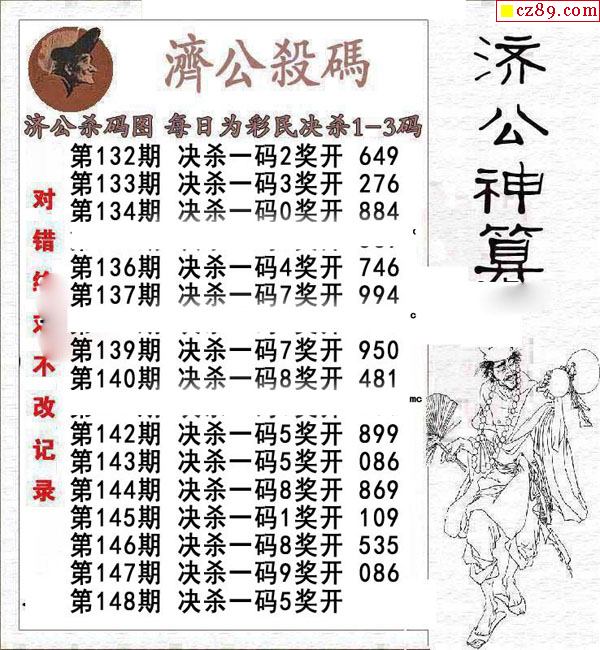 cz89.com
濟公殺碼
济公神算
济公杀码图 每日为彩民决杀1-3码
第132期 决杀一码2奖开 649
第133期 决杀一码3奖开 276
第134期 决杀一码0奖开 884
第136期 决杀一码4奖开 746
第137期 决杀一码7奖开 994
第139期 决杀一码7奖开 950
第140期 决杀一码8奖开 481
第142期 决杀一码5奖开 899
第143期 决杀一码5奖开 086
第144期 决杀一码8奖开 869
第145期 决杀一码1奖开 109
第146期 决杀一码8奖开 535
第147期 决杀一码9奖开 086
第148期 决杀一码5奖开
对错 不改记录
c
mc